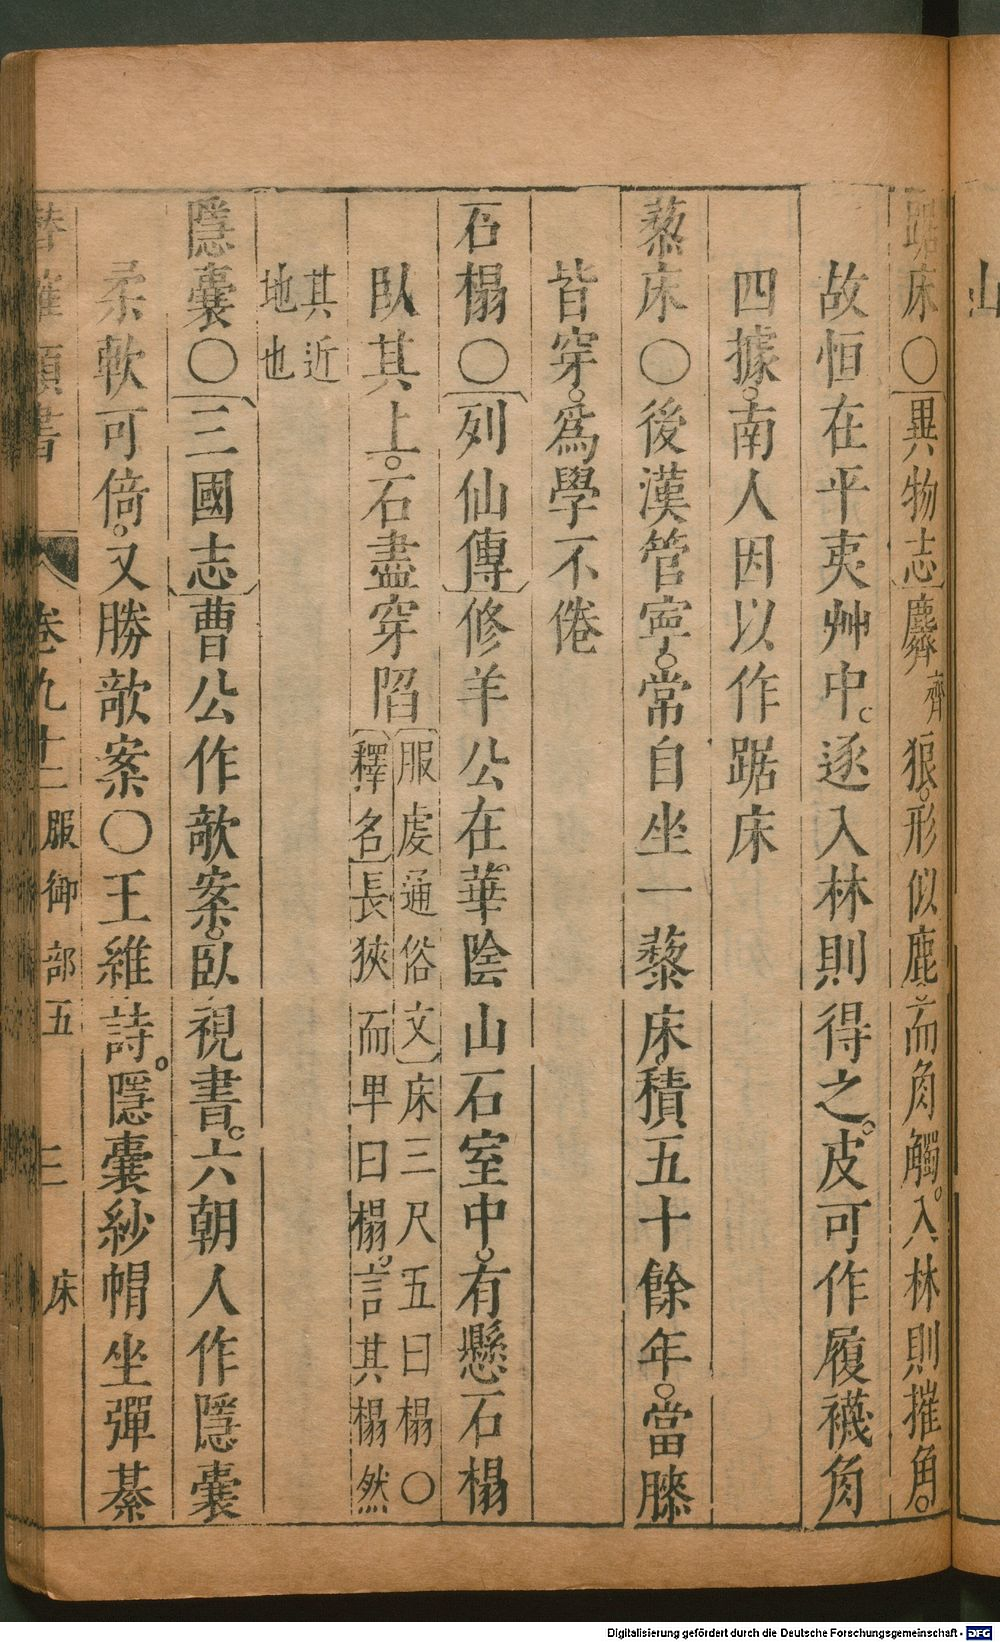 山
踞床〇異物志麡齊狼形似鹿而角觸入林則摧角
故恒在平夷艸中逐入林則得之皮可作履襪角
四據南人因以作踞床
藜床〇後漢管寧常自坐一藜床積五十餘年當膝
皆穿為學不倦
石榻〇列仙傳修羊公在華陰山石室中有懸石榻
臥其上石盡穿陷
服虔通俗文床三尺五曰榻〇
釋名長狹而卑曰榻言其榻然
其近
地也
隱囊〇三國志曹公作欹案臥視書六朝人作隱囊
柔軟可倚又勝欹案〇王維詩隱囊紗帽坐彈棊
類書 卷九十二 服御部五 三 床
Digitalisierung gefördert durch die Deutsche Forschungsgemeinschaft - DFG